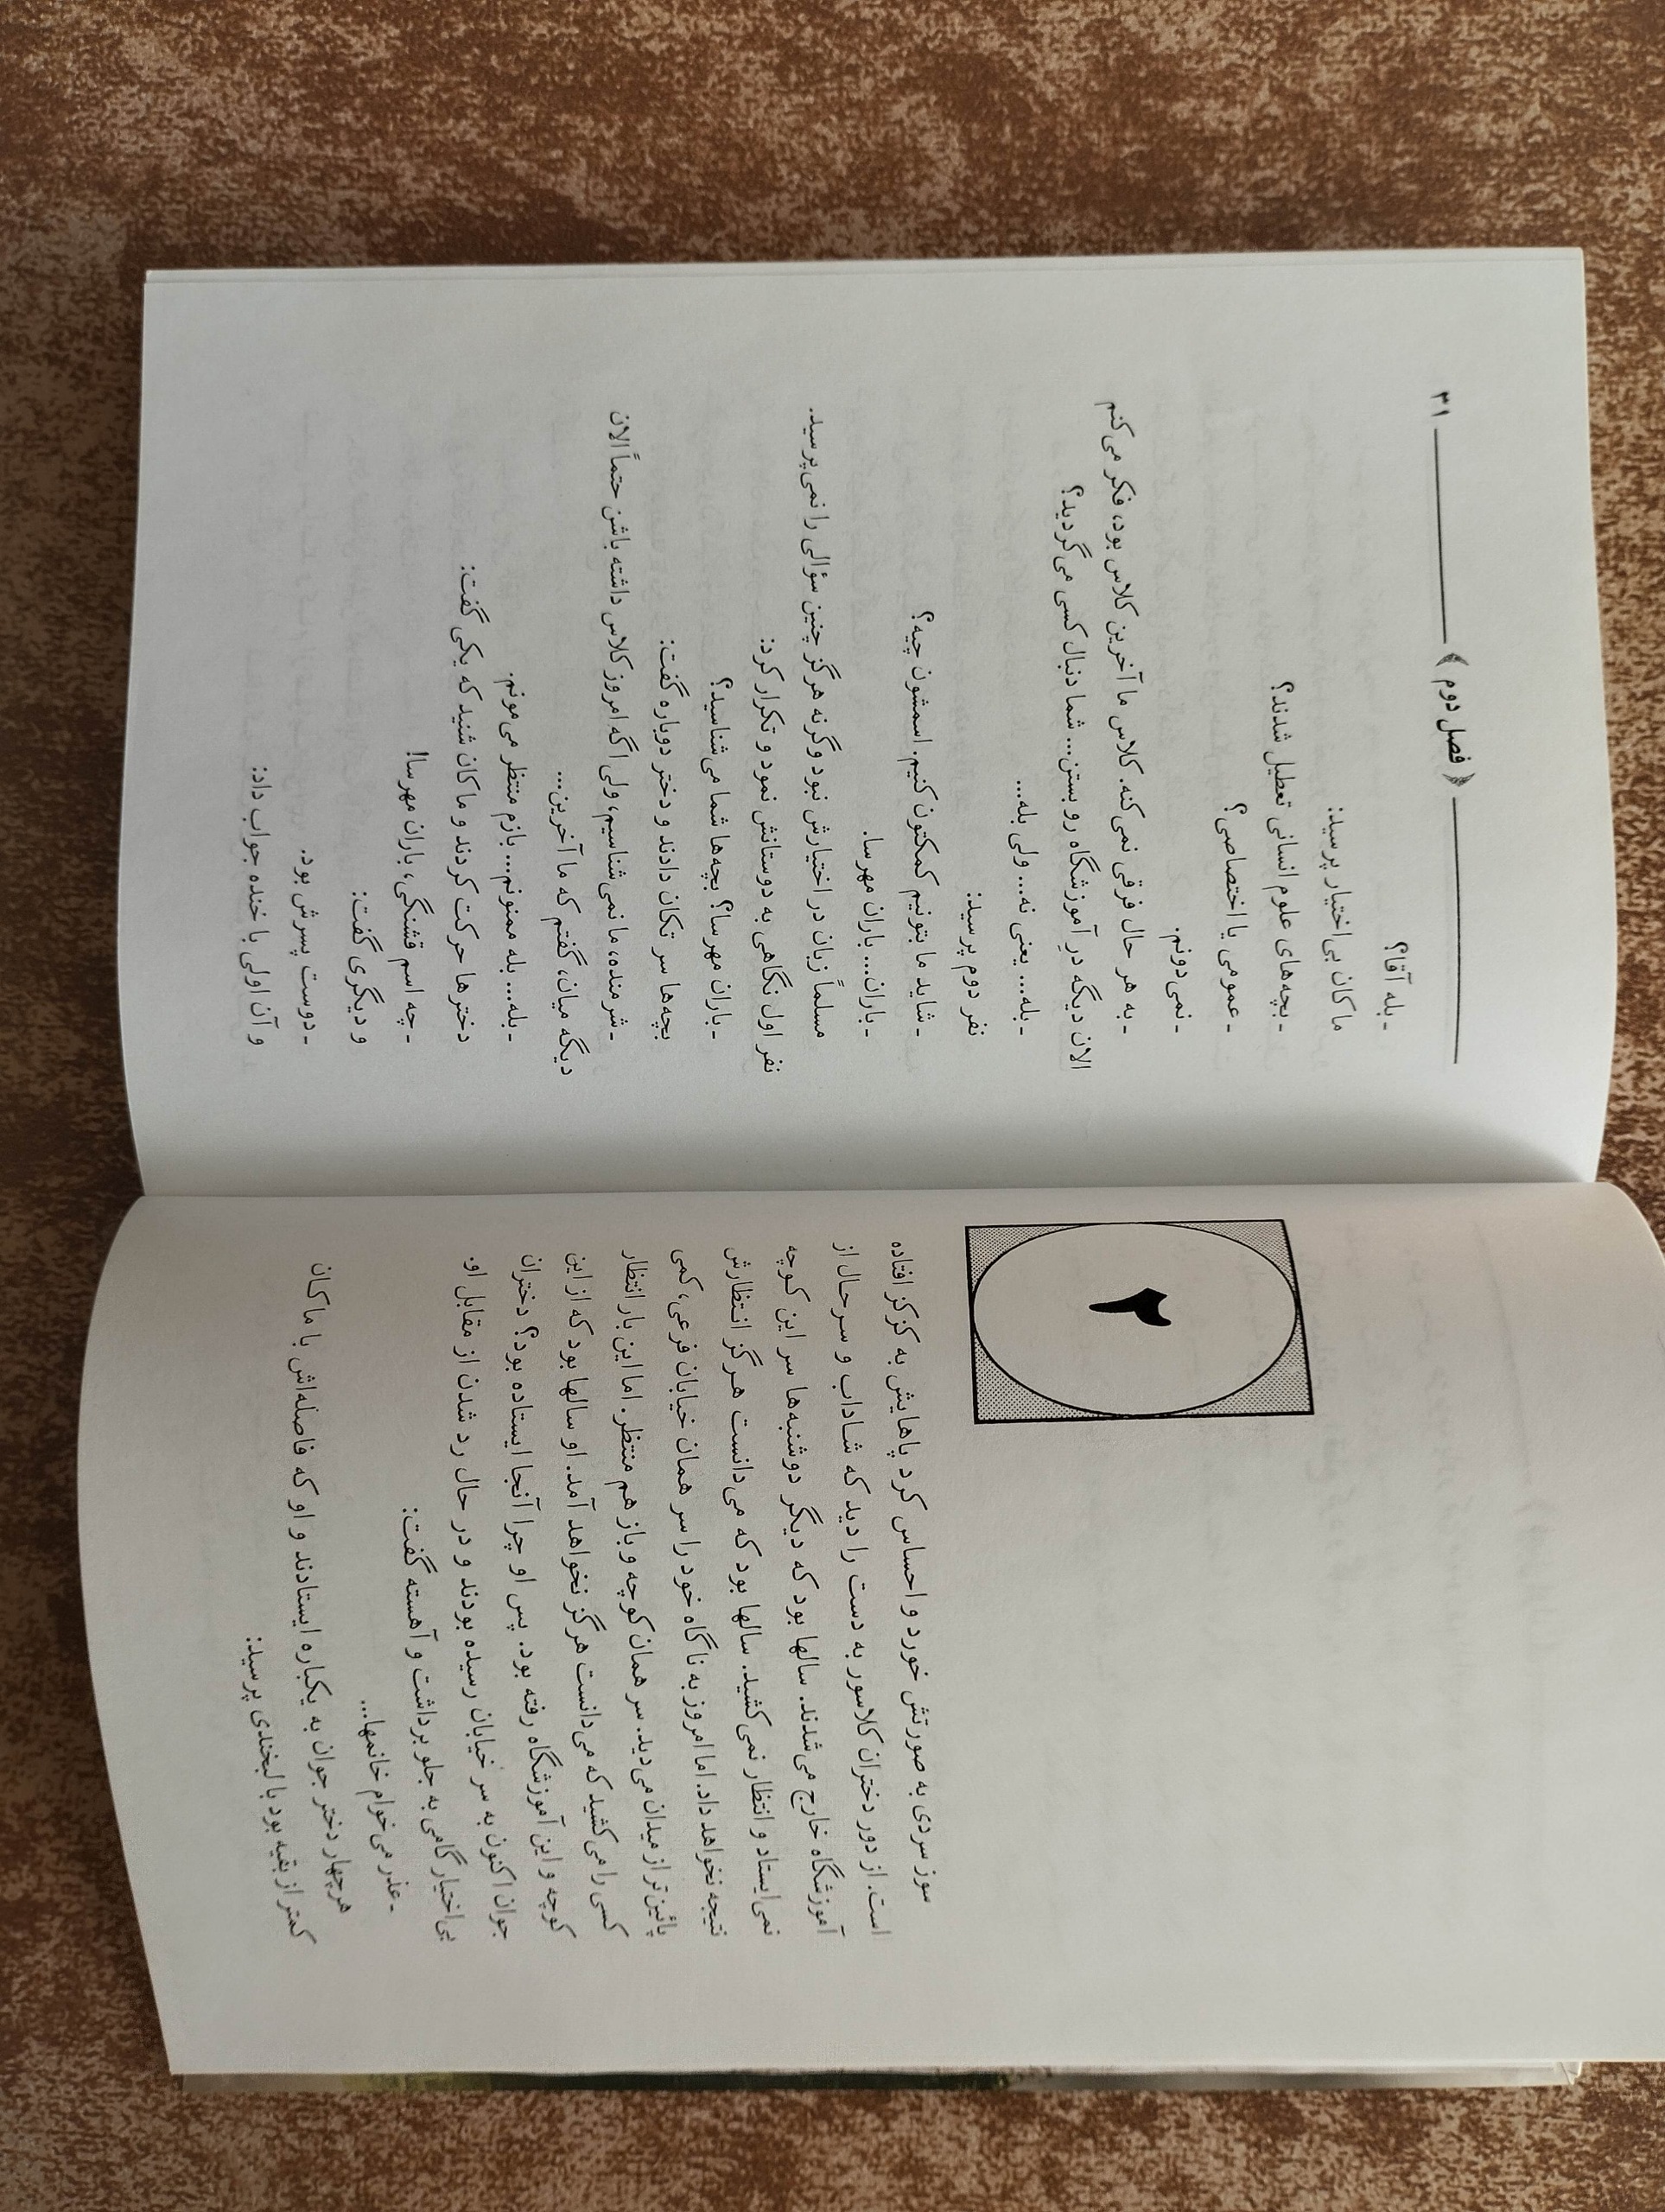 ۲
سوز سردی به صورتش خورد و احساس کرد پاهایش به کزکز افتاده
است. از دور دختران کلاسور به دست را دید که شاداب و سرحال از
آموزشگاه خارج می‌شدند. سالها بود که دیگر دوشنبه‌ها سر این کوچه
نمی‌ایستاد و انتظار نمی‌کشید. سالها بود که می‌دانست هرگز انتظارش
نتیجه نخواهد داد. اما امروز به ناگاه خود را سر همان خیابان فرعی، کمی
پائین‌تر از میدان می‌دید. سر همان کوچه و باز هم منتظر. اما این بار انتظار
کسی را می‌کشید که می‌دانست هرگز نخواهد آمد. او سالها بود که از این
کوچه و این آموزشگاه رفته بود. پس او چرا آنجا ایستاده بود؟ دختران
جوان اکنون به سر خیابان رسیده بودند و در حال رد شدن از مقابل او.
بی‌اختیار گامی به جلو برداشت و آهسته گفت:
ـ عذر می‌خوام خانمها...
هر چهار دختر جوان به یکباره ایستادند و او که فاصله‌اش با ماکان
کمتر از بقیه بود با لبخندی پرسید:
فصل دوم ۳۱
ـ بله آقا؟
ماکان بی‌اختیار پرسید:
ـ بچه‌های علوم انسانی تعطیل شدند؟
ـ عمومی یا اختصاصی؟
ـ نمی‌دونم.
ـ به هر حال فرقی نمی‌کنه. کلاس ما آخرین کلاس بود، فکر می‌کنم
الان دیگه درِ آموزشگاه رو بستن... شما دنبال کسی می‌گردید؟
ـ بله... یعنی نه... ولی بله...
نفر دوم پرسید:
ـ شاید ما بتونیم کمکتون کنیم. اسمشون چیه؟
ـ باران... باران مهرسا.
مسلماً زبان در اختیارش نبود وگرنه هرگز چنین سؤالی را نمی‌پرسید.
نفر اول نگاهی به دوستانش نمود و تکرار کرد:
ـ باران مهرسا؟ بچه‌ها شما می‌شناسید؟
بچه‌ها سر تکان دادند و دختر دوباره گفت:
ـ شرمنده، ما نمی‌شناسیم، ولی اگه امروز کلاس داشته باشن حتماً الان
دیگه میان، گفتم که ما آخرین...
ـ بله... بله ممنونم... بازم منتظر می‌مونم.
دخترها حرکت کردند و ماکان شنید که یکی گفت:
ـ چه اسم قشنگی، باران مهرسا!
و دیگری گفت:
ـ دوست پسرش بود.
و آن اولی با خنده جواب داد: